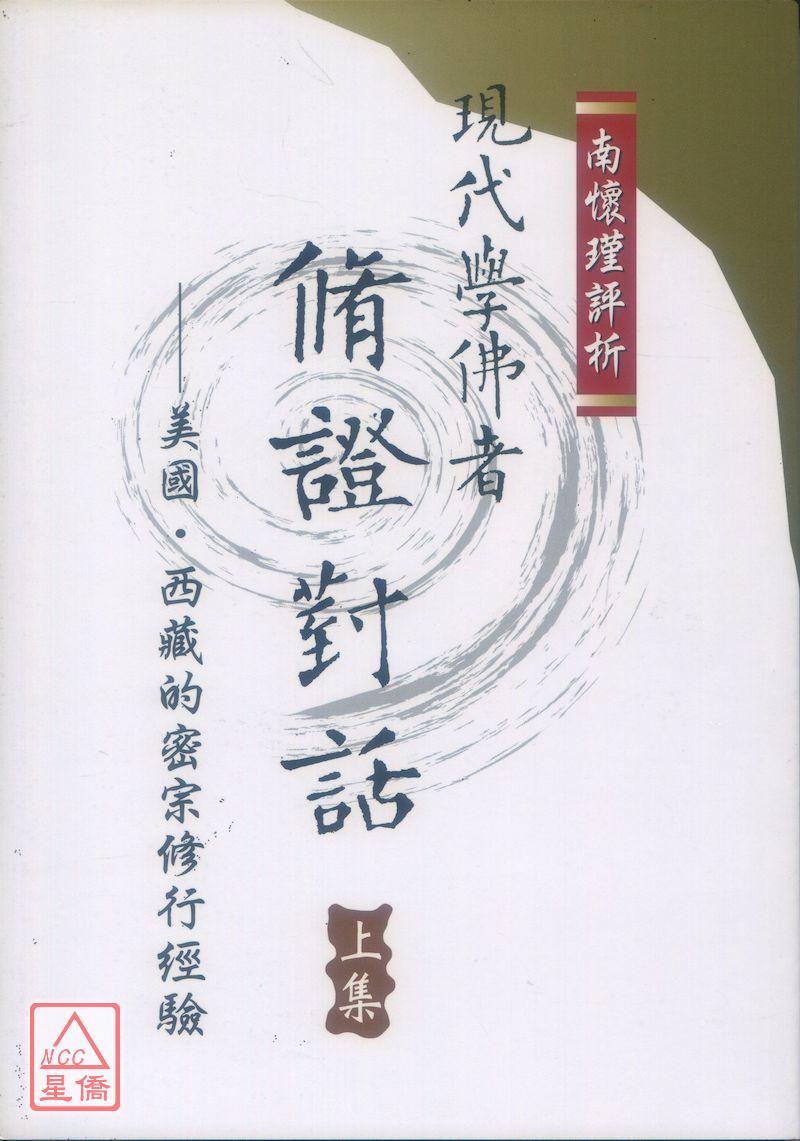 南懷瑾評析
現代學佛者
脩證對話
上集
——美國・西藏的密宗修行經驗
NCC
星僑